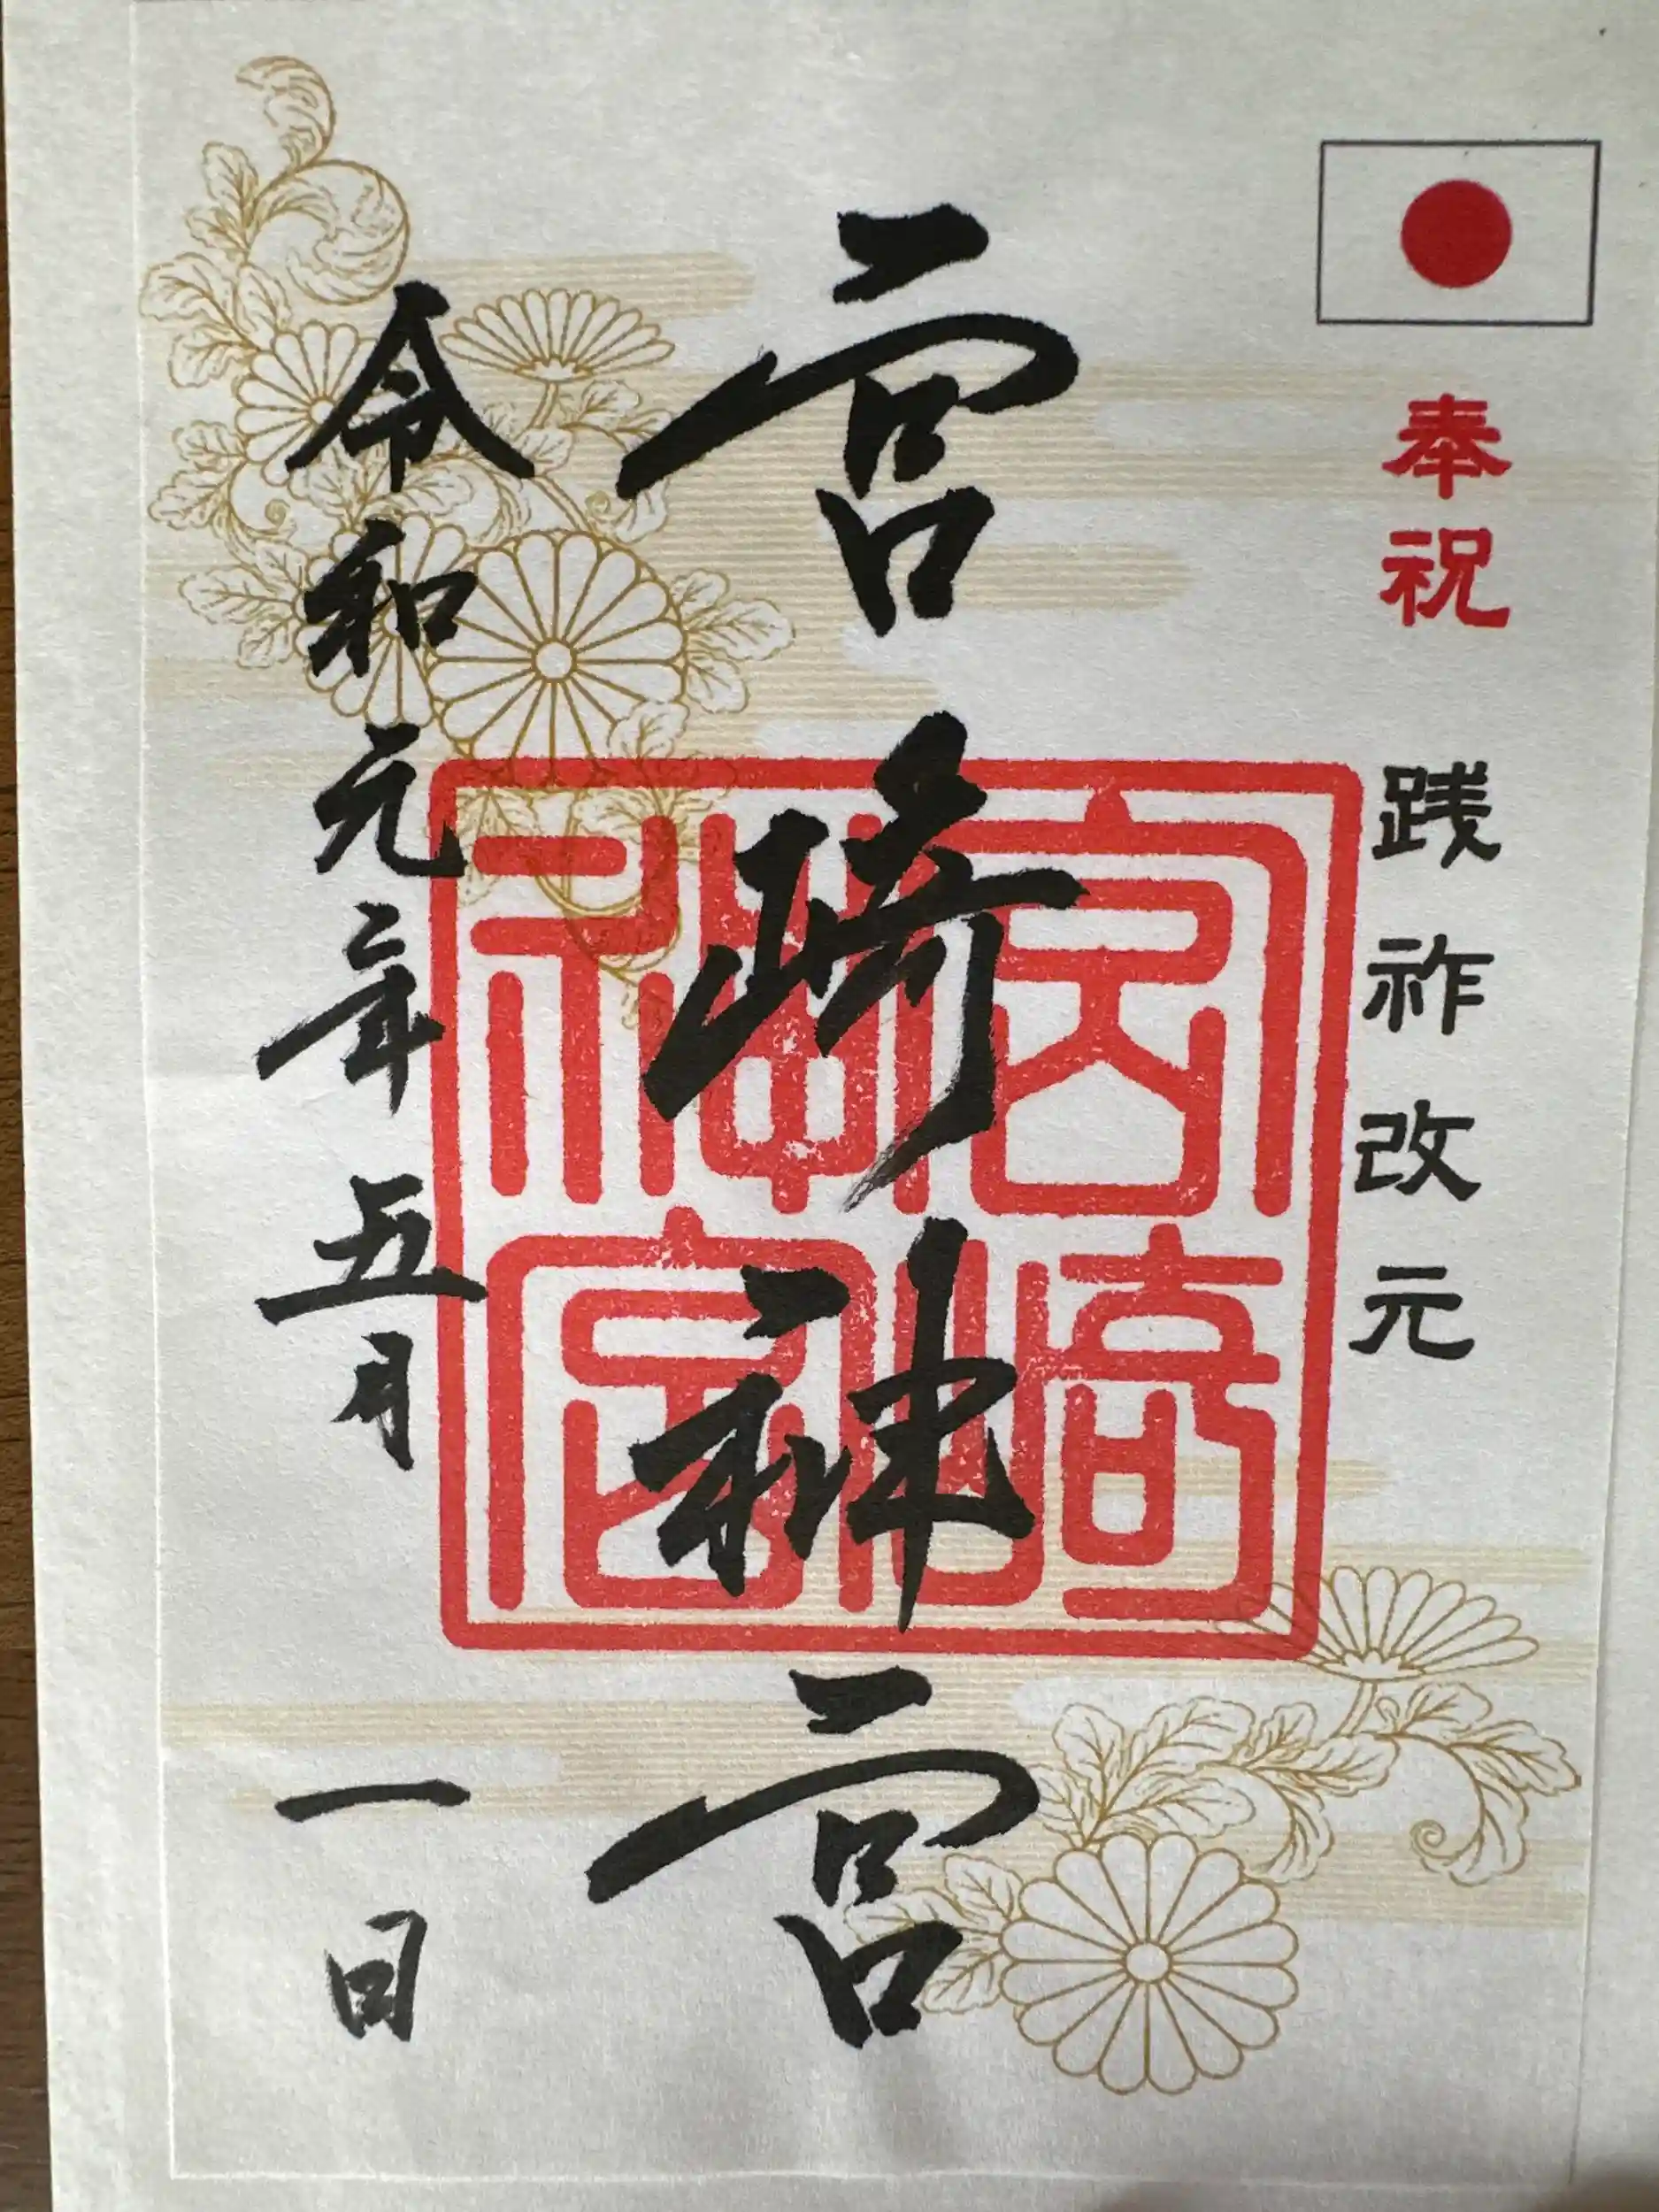 奉祝 践祚改元
宮崎神宮
宮崎神宮
令和元年五月一日